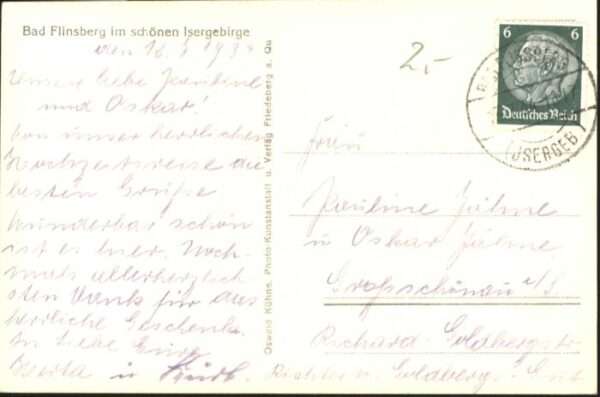 Bad Flinsberg im schönen Isergebirge
den 16. 193
Unsere liebe Pauline
und Oskar!
Von unser herrlichen
Hochzeitsreise die
besten Grüße
Wunderbar schön
ist es hier. Noch-
mals allerherzlich
sten Dank für das
herrliche Geschenk.
In Liebe Eure
Herta u.
Oswald Kühne, Photo-Kunstanstalt u. Verlag Friedeberg a. Qu
2,-
6 6
Deutsches Reich
(ISERGEB)
Frau
Pauline Jähne
u Oskar Jähne
Großschönau i/S
Richard-Goldberg-str